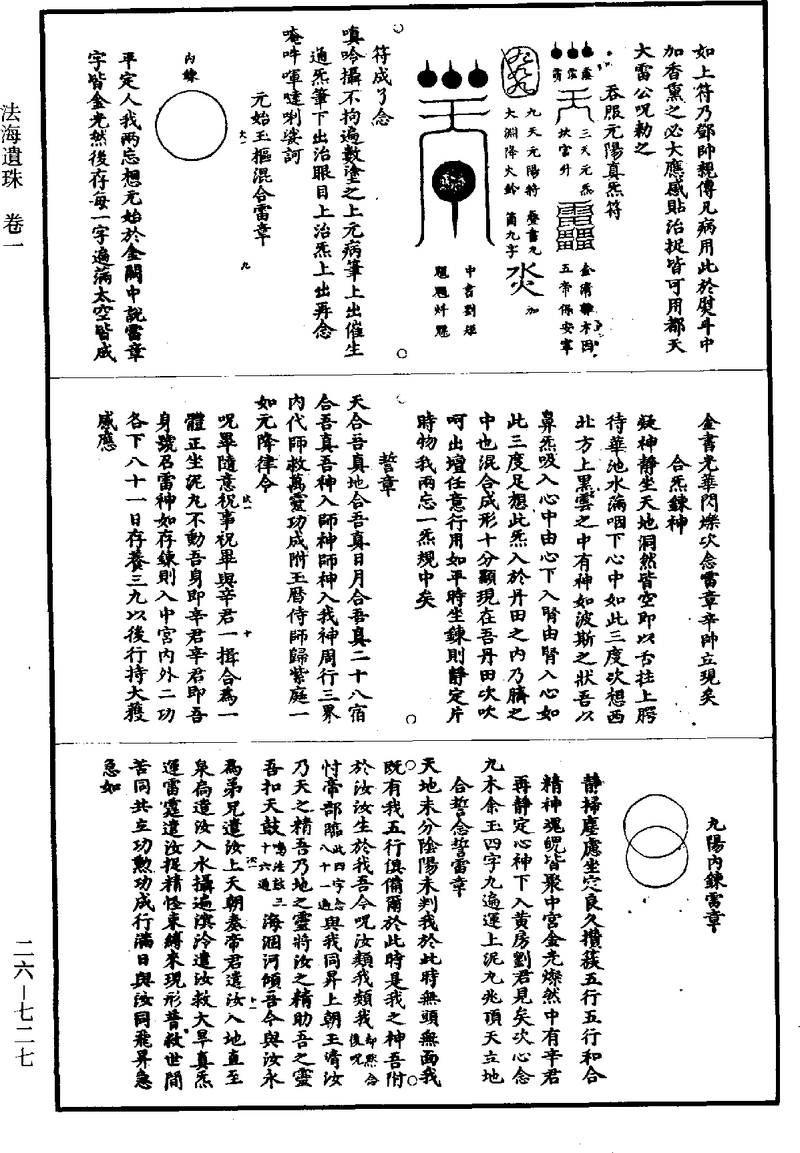 法海遺珠 卷一
二六—七二七
如上符乃鄧帥親傳凡病用此於熨斗中
加香熏之必大應感貼治捉皆可用都天
大雷公呪勅之
吞服元陽真炁符
三天元炁
坎宮升
金清
五帝保安寧
九天元陽符
大淵降火鈴
疊書九
箇九字
加
中書劉矩
魁
符成了念
嗔吟攝不拘遍數塗之上元病筆上出催生
通炁筆下出治眼目上治炁上出再念
唵吽㖶㗳唎娑訶
元始玉樞混合雷章
內鍊
平定人我兩忘想元始於金闕中說雷章
字皆金光然後存每一字遍滿太空皆成
金書光華閃爍次念雷章辛帥立現矣
合炁鍊神
凝神靜坐天地洞然皆空即以舌拄上腭
待華池水滿咽下心中如此三度次想西
北方上黑雲之中有神如波斯之狀吾以
鼻炁吸入心中由心下入腎由腎入心如
此三度足想此炁入於丹田之內乃臍之
中也混合成形十分顯現在吾丹田次吹
呵出壇任意行用如平時坐鍊則靜定片
時物我兩忘一炁規中矣
誓章
天合吾真地合吾真日月合吾真二十八宿
合吾真吾神入師神師神入我神周行三界
內代師救萬靈功成附玉曆侍師歸紫庭一
如元降律令
呪畢隨意祝事祝畢與辛君一揖合為一
體正坐泥丸不動吾身即辛君辛君即吾
身號召雷神如存鍊則入中宮內外二功
各下八十一日存養三九以後行持大獲
感應
九陽內鍊雷章
靜掃塵慮坐定良久攢簇五行五行和合
精神魂魄皆聚中宮金光燦然中有辛君
再靜定心神下入黃房劉君見矣次心念
九木余玉四字九遍運上泥丸兆頂天立地
合誓念誓雷章
天地未分陰陽未判我於此時無頭無面我
既有我五行俱備爾於此時是我之神吾附
於汝汝生於我吾今呪汝類我類我却然念後呪
忖帝部臨此四字念八十一遍與我同昇上朝玉清汝
乃天之精吾乃地之靈將汝之精助吾之靈
吾扣天鼓鳴法鼓三十六通海涸河傾吾今與汝永
為弟兄遣汝上天朝奏帝君遣汝入地直至
泉扃遣汝入水攝遍溟泠遣汝救大旱真炁
運雷霆遣汝捉精怪束縛來現形普救世間
苦同共立功勲功成行滿日與汝同飛昇急
急如